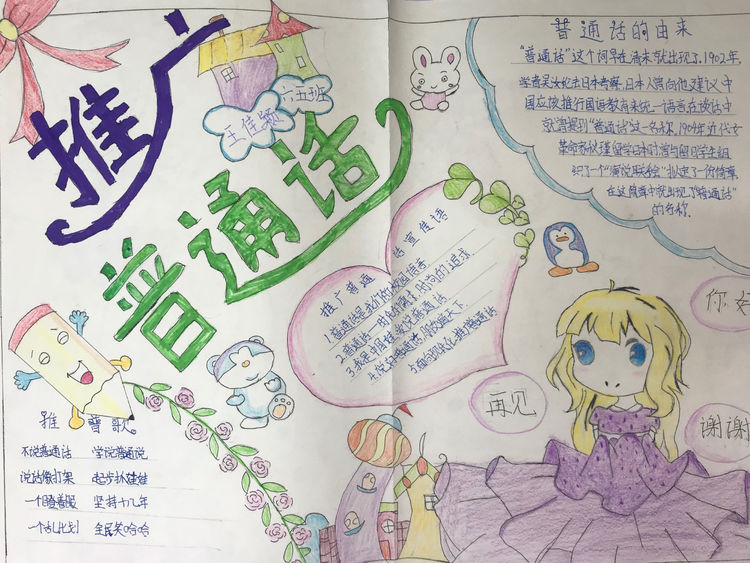 推广
普通话
六五班
王佳颖
普通话的由来
“普通话”这个词早在清末就出现了，1902年，
学者吴汝纶去日本考察，日本人曾向他建议中
国应该推行国语教育来统一语言在谈话中
就曾提到“普通话”这一名称，1904年近代女
革命家秋瑾留学日本时曾与留日学生组
织了一个“演说联络会”拟定了一份简章
在这简章中就出现了“普通话”
的名称.
推广普通话宣传语
1.普通话是我们的校园语言
2.普通话——
3.我是中国娃爱说普通话
4.说好普通话,朋友遍天下.
5.面向现代化推广普通话
你好
再见
谢谢
推普歌。
不说普通话 学说普通说
说话像打架 起步扒娃娃
一个 坚持十八年
一个 全民笑哈哈